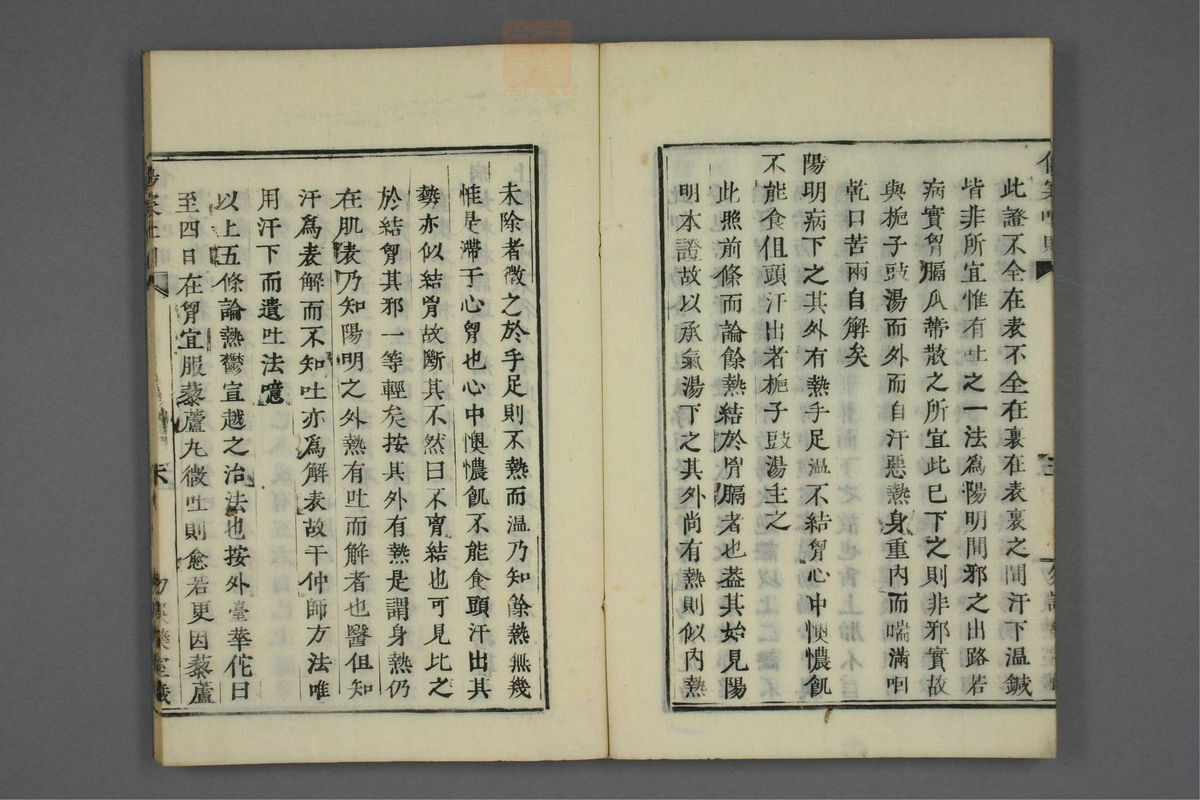 此證不全在表不全在裏在表裏之間汗下溫鍼
皆非所宜惟有吐之一法爲陽明間邪之出路若
病實胷膈瓜蒂散之所宜此已下之則非邪實故
與梔子豉湯而外而自汗惡熱身重內而喘滿咽
乾口苦兩自解矣
陽明病下之其外有熱手足溫不結胷心中懊憹飢
不能食但頭汗出者梔子豉湯主之
此照前條而論餘熱結於胷膈者也蓋其始見陽
明本證故以承氣湯下之其外尚有熱則似內熱
未除者徵之於手足則不熱而溫乃知餘熱無幾
惟是滯于心胷也心中懊憹飢不能食頭汗出其
勢亦似結胷故斷其不然曰不實結也可見比之
於結胷其邪一等輕矣按其外有熱是謂身熱仍
在肌表乃知陽明之外熱有吐而解者也醫但知
汗爲表解而不知吐亦爲解表故于仲師方法唯
用汗下而遺吐法噫
以上五條論熱鬱宣越之治法也按外臺華佗曰
至四日在胷宜服藜蘆丸微吐則愈若更因藜蘆